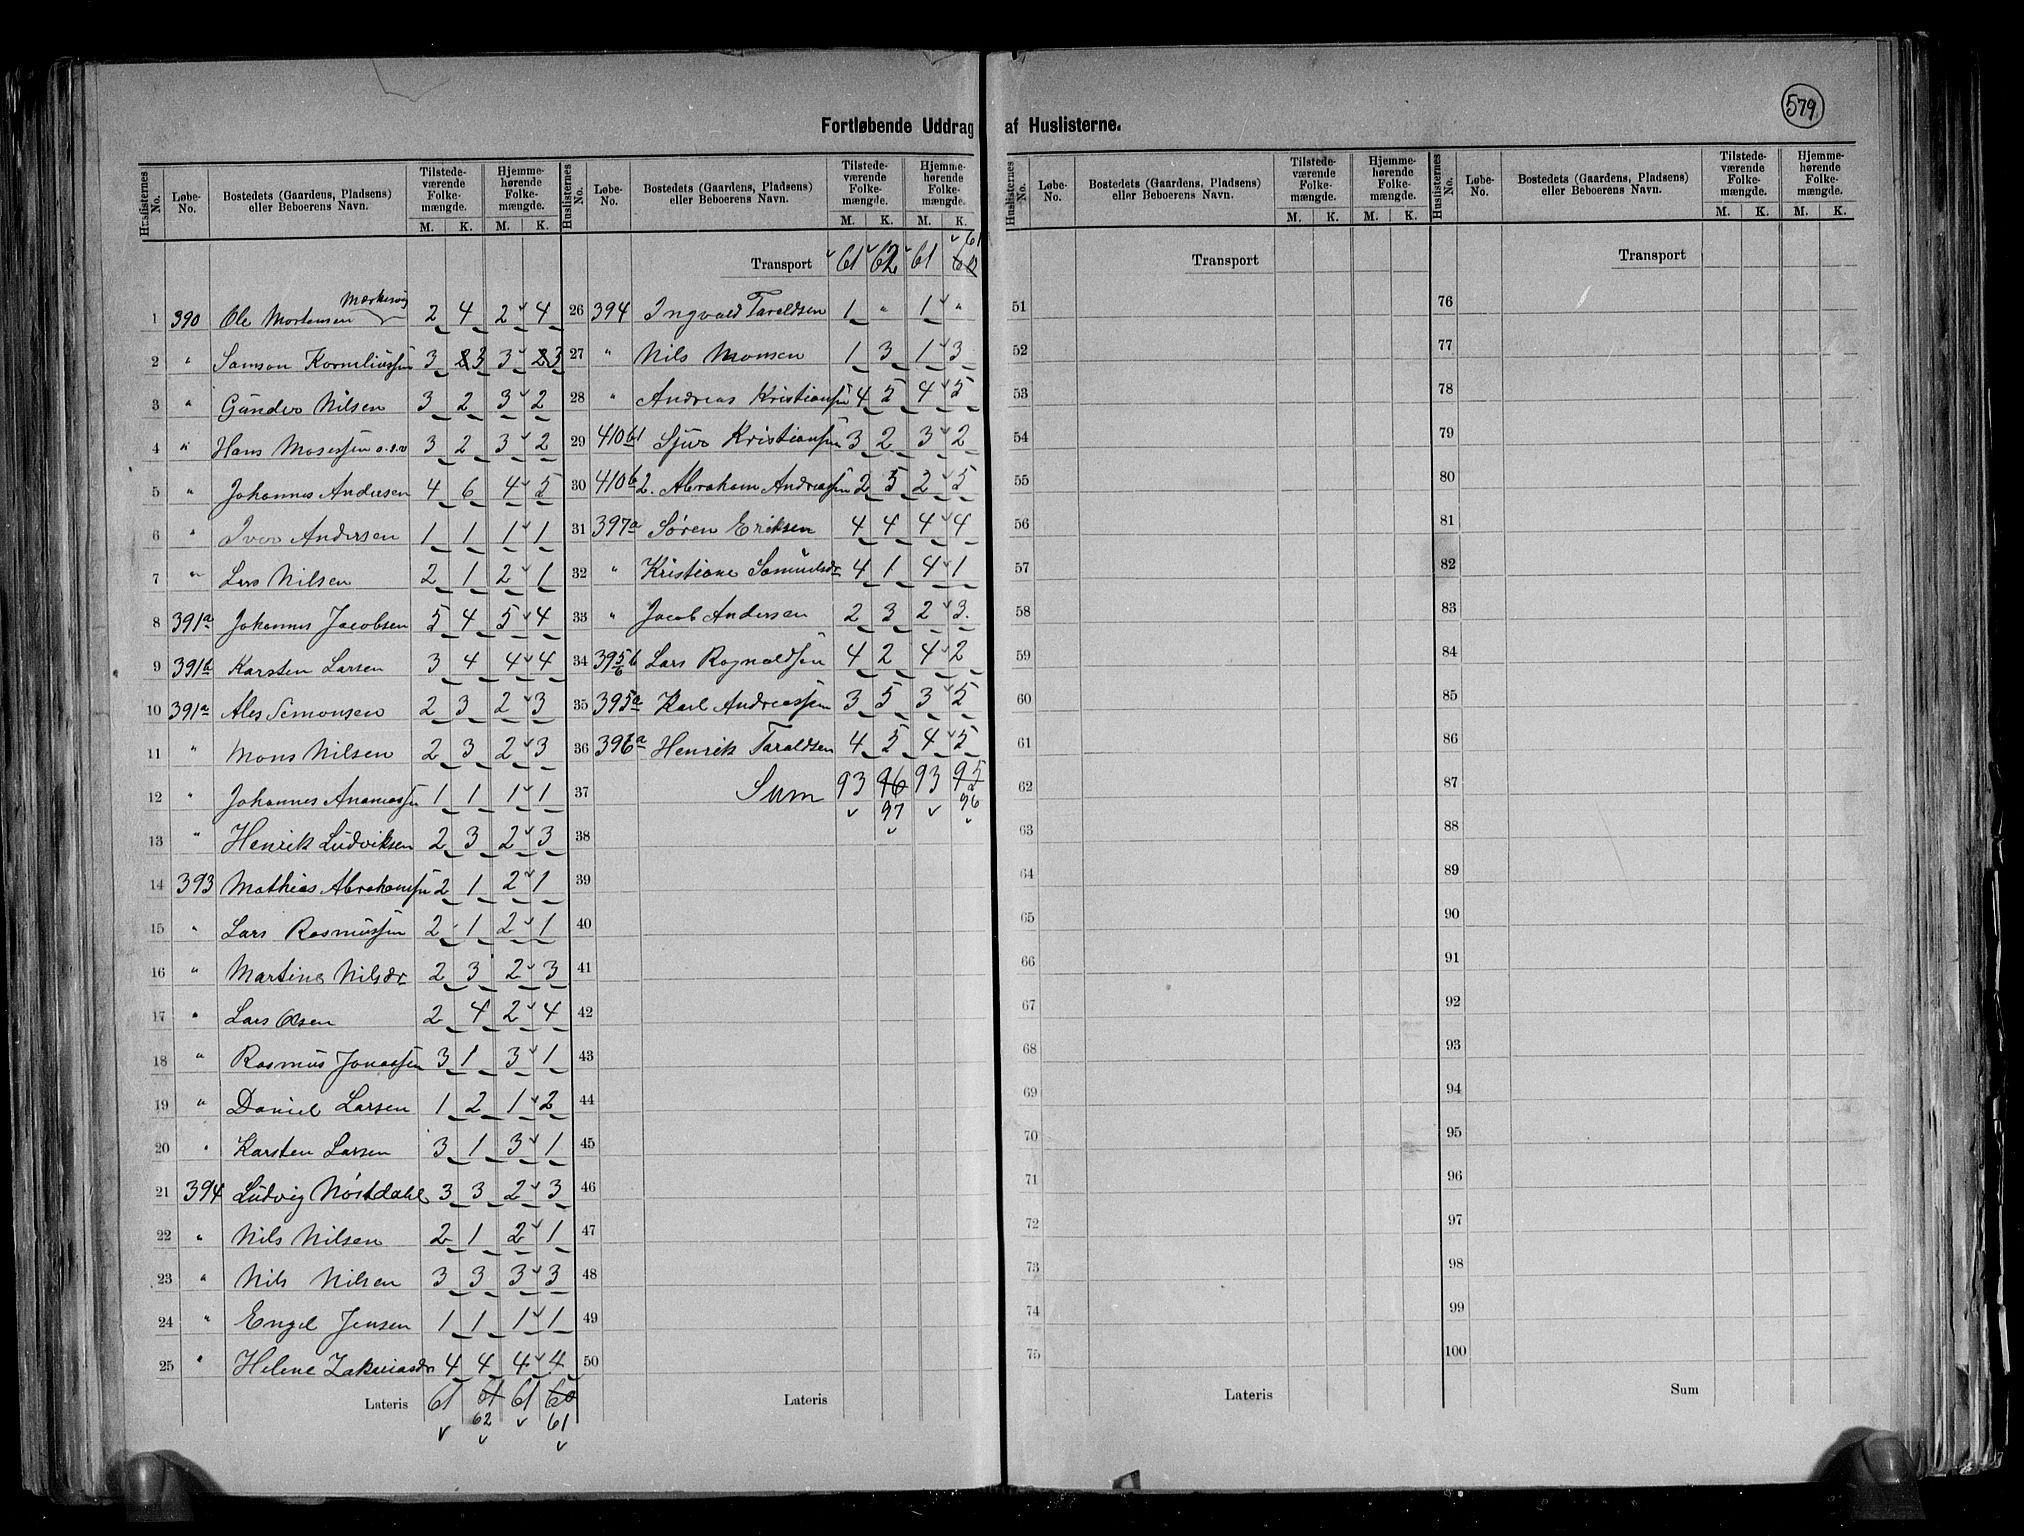 579
Fortløbende Uddrag af Huslisterne.
Huslisternes No. Løbe-No. Bostedets (Gaardens, Pladsens) eller Beboerens Navn. Tilstedeværende Folkemængde. M. K. Hjemmehørende Folkemængde. M. K.
1 390 Ole Mortensen 2 4 2 4
2 " Samson Korneliussen 3 2 3 3 2 3
3 " Gunder Nilsen 3 2 3 2
4 " Hans Mosessen 3 2 3 2
5 " Johannes Andersen 4 6 4 5
6 " Iver Andersen 1 1 1 1
7 " Lars Nilsen 2 1 2 1
8 391a Johannes Jacobsen 5 4 5 4
9 Karsten Larsen 3 4 4 4
10 391a Simonsen 2 3 2 3
11 " Mons Nilsen 2 3 2 3
12 " Johannes 1 1 1 1
13 " Henrik Ludviksen 2 3 2 3
14 393 Mathias Abrahamsen 2 1 2 1
15 " Lars Rasmussen 2 1 2 1
16 " Martine Nilsdr 2 3 2 3
17 " Lars Olsen 2 4 2 4
18 " Rasmus Jonassen 3 1 3 1
19 " Daniel Larsen 1 2 1 2
20 " Karsten Larsen 3 1 3 1
21 394 Ludvig Nøstdahl 3 3 2 3
22 " Nils Nilsen 2 1 2 1
23 " Nils Nilsen 3 3 3 3
24 " Engel Jensen 1 1 1 1
25 " Helene Zakariasdr 4 4 4 4
Lateris 61 61 61 60
62 61
Huslisternes No. Løbe-No. Bostedets (Gaardens, Pladsens) eller Beboerens Navn. Tilstedeværende Folkemængde. M. K. Hjemmehørende Folkemængde. M. K.
61
Transport 61 62 61 60
26 394 Ingvald Taraldsen 1 " 1 "
27 " Nils Monsen 1 3 1 3
28 " Andreas Kristiansen 4 5 4 5
29 410b1 Sjur Kristiansen 3 2 3 2
30 410b2. Abraham Andreassen 2 5 2 5
31 397a Søren Eriksen 4 4 4 4
32 " Kristiane Samuelsdr 4 1 4 1
33 " Jacob Andersen 2 3 2 3.
34 Lars Ragnaldsen 4 2 4 2
35 395a Karl Andreassen 3 5 3 5
36 396a Henrik Taraldsen 4 5 4 5
37 Sum 93 96 93 95
97 96
38
39
40
41
42
43
44
45
46
47
48
49
50
Lateris
Huslisternes No. Løbe-No. Bostedets (Gaardens, Pladsens) eller Beboerens Navn. Tilstedeværende Folkemængde. M. K. Hjemmehørende Folkemængde. M. K.
Transport
51
52
53
54
55
56
57
58
59
60
61
62
63
64
65
66
67
68
69
70
71
72
73
74
75
Lateris
Huslisternes No. Løbe-No. Bostedets (Gaardens, Pladsens) eller Beboerens Navn. Tilstedeværende Folkemængde. M. K. Hjemmehørende Folkemængde. M. K.
Transport
76
77
78
79
80
81
82
83
84
85
86
87
88
89
90
91
92
93
94
95
96
97
98
99
100
Sum